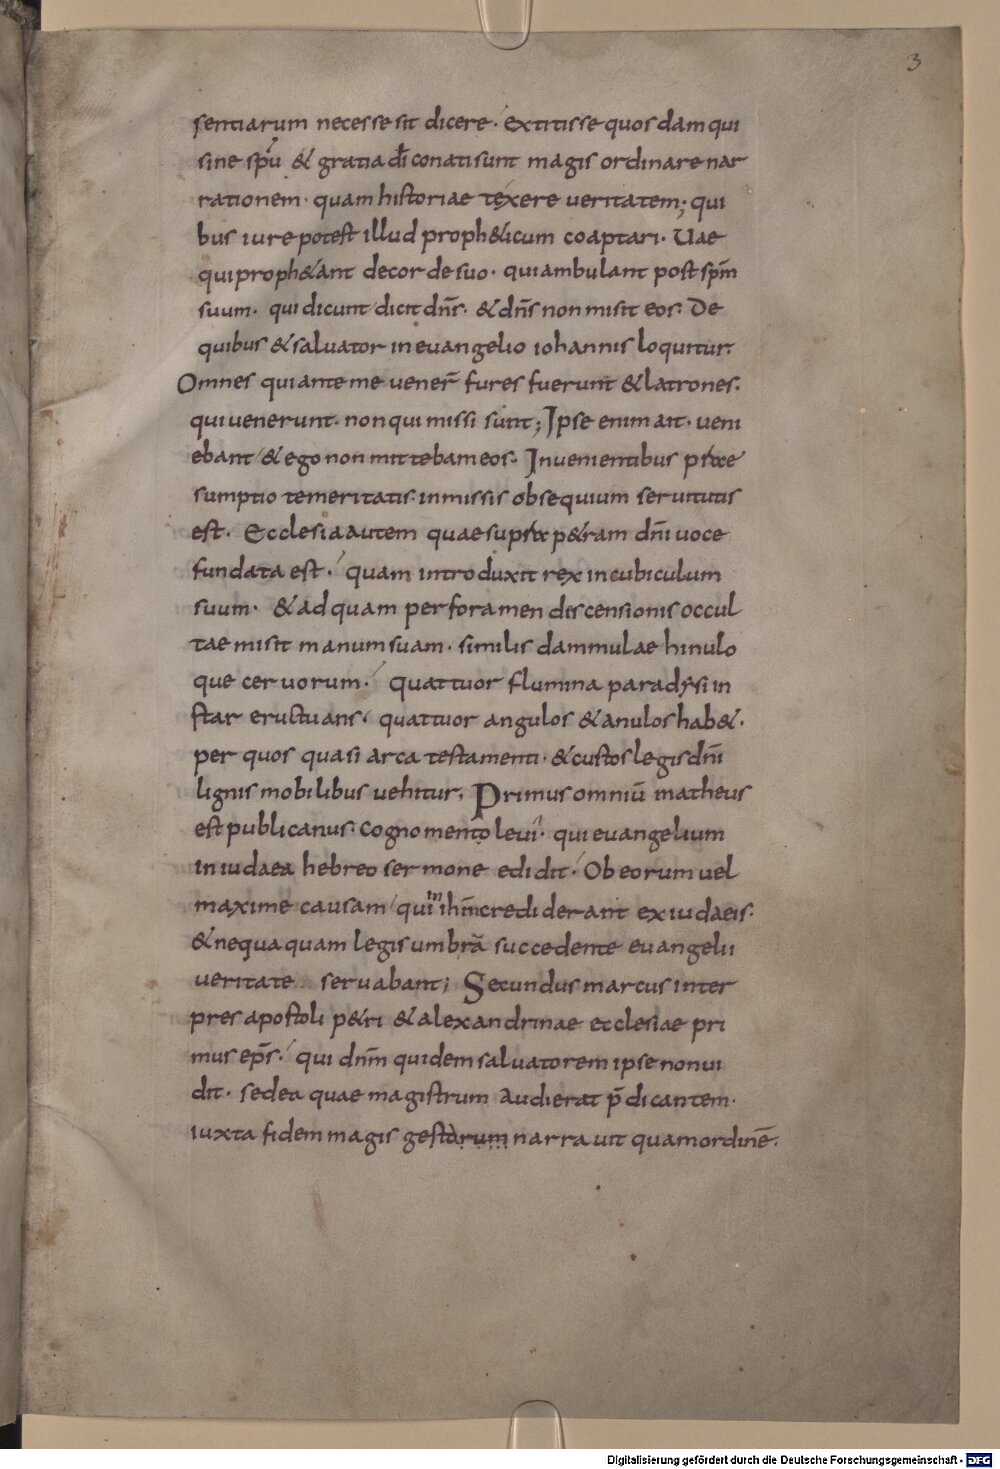 3
sentiarum necesse sit dicere· extitisse quosdam qui
sine spū & gratia dī conati sunt magis ordinare nar
rationem· quam historiae texere veritatem; qui
bus iure potest illud proph&icum coaptari· Uae
qui proph&ant de corde suo· qui ambulant post spm̄
suum· qui dicunt dicit dn̄s· & dn̄s non misit eos· De
quibus & salvator in evangelio iohannis loquitur·
Omnes qui ante me vener̄ fures fuerunt & latrones·
qui venerunt· non qui missi sunt; Ipse enim ait· veni
ebant & ego non mittebam eos· In venientibus
sumptio temeritatis· in missis obsequium servitutis
est· Ecclesia autem quae p&ram dn̄i voce
fundata est· quam introduxit rex in cubiculum
suum· & ad quam per foramen descensionis occul
tae misit manum suam· similis dammulae hinulo
que cervorum· Quattuor flumina paradysi in
star eructuans· quattuor angulos & anulos hab&·
per quos quasi arca testamenti· & custos legis dn̄i
lignis mobilibus vehitur· Primus omniū matheus
est publicanus· cognomento levi· qui evangelium
in iudaea hebreo sermone edidit· Ob eorum vel
maxime causam qui in ihm̄ crediderant ex iudaeis·
& nequaquam legis umbrā succedente evangelii
veritate servabant; Secundus marcus inter
pres apostoli p&ri & alexandrinae ecclesiae pri
mus ep̄s· qui dnm̄ quidem salvatorem ipse non vi
dit· sed ea quae magistrum audierat p̄dicantem·
iuxta fidem magis gestorum narravit quam ordinē·
Digitalisierung gefördert durch die Deutsche Forschungsgemeinschaft - DFG